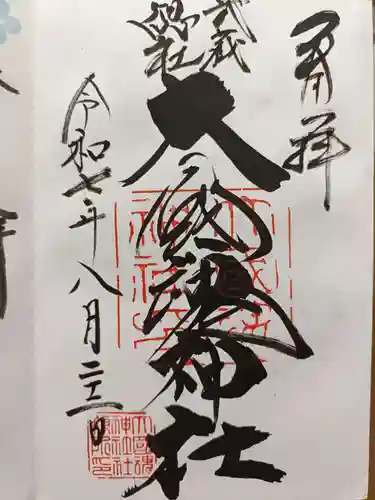 奉拝
武蔵
總社
大國魂神社
令和七年八月二十二日